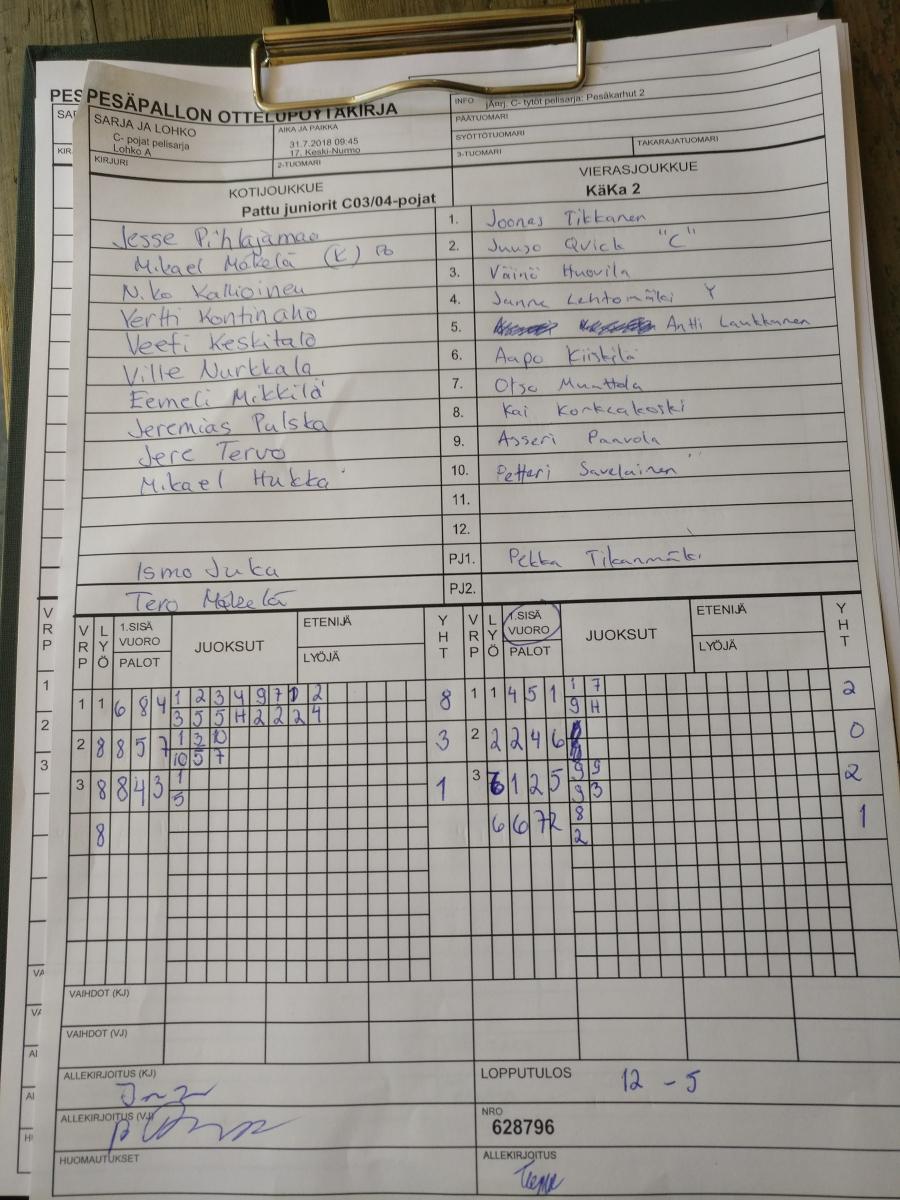 PES PESÄPALLON OTTELUPÖYTÄKIRJA
SARJA JA LOHKO
C- pojat pelisarja
Lohko A
AIKA JA PAIKKA
31.7.2018 09:45
17. Keski-Nurmo
INFO jAnrj. C- tytöt pelisarja: Pesäkarhut 2
PÄÄTUOMARI
SYÖTTÖTUOMARI
KIRJURI
2-TUOMARI
3-TUOMARI
TAKARAJATUOMARI
KOTIJOUKKUE
Pattu juniorit C03/04-pojat
VIERASJOUKKUE
KäKa 2
Jesse Pihlajamaa 1. Joonas Tikkanen
Mikael Mäkelä (K) 2. Juuso Quick "C"
Niko Kallioinen 3. Väinö Huovila
Vertti Kontinaho 4. Janne Lehtomäki Y
Veeti Keskitalo 5. Antti Laukkanen
Ville Nurkkala 6. Aapo Kiiskilä
Eemeli Mikkilä 7. Otso Muattola
Jeremias Pulska 8. Kai Korkeakoski
Jere Tervo 9. Asseri Paavola
Mikael Hukka 10. Petteri Savelainen
11.
12.
Ismo Juka PJ1. Pekka Tikanmäki
Tero Mäkelä PJ2.
VRP LYÖ 1.SISÄ VUORO PALOT JUOKSUT ETENIJÄ LYÖJÄ YHT VRP LYÖ 1.SISÄ VUORO PALOT JUOKSUT ETENIJÄ LYÖJÄ YHT
1 1 6 8 4 1 2 3 4 9 7 1 2 8 1 1 4 5 1 1 7 2
3 5 5 H 2 2 2 4 9 H
2 8 8 5 7 1 3 10 3 2 2 2 4 6 0
10 5 7
3 8 8 4 3 1 1 3 6 1 2 5 9 9 2
5 9 3
8 6 6 7 2 8 1
2
VAIHDOT (KJ)
VAIHDOT (VJ)
ALLEKIRJOITUS (KJ)
LOPPUTULOS 12 - 5
ALLEKIRJOITUS (VJ)
NRO
628796
HUOMAUTUKSET
ALLEKIRJOITUS